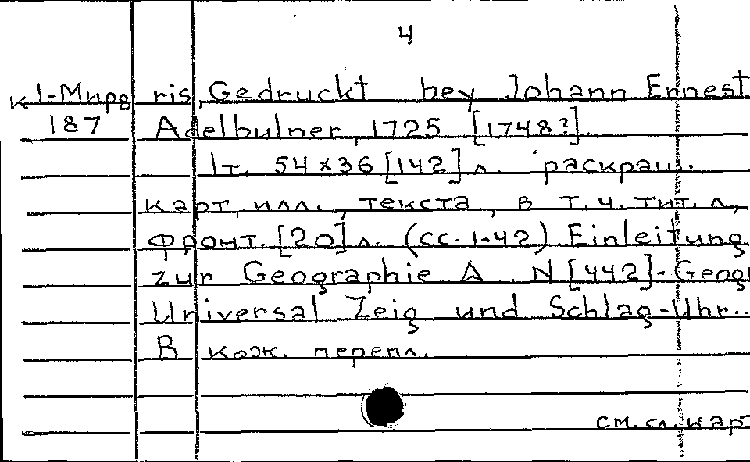 4
К 1-Мира ris, Gedruckt bey Johann Ernest
187 Adelbulner, 1725 [1748?]
1т. 54x36 [142] л. раскраш.
карт, илл., текста, в т.ч. тит. л.,
фронт. [20] л. (сс. 1-42) Einleitung
zur Geographie A N [442]-Geogr
Universal Zeig und Schlag-Uhr..
В кож. перепл.
см. сл. кар